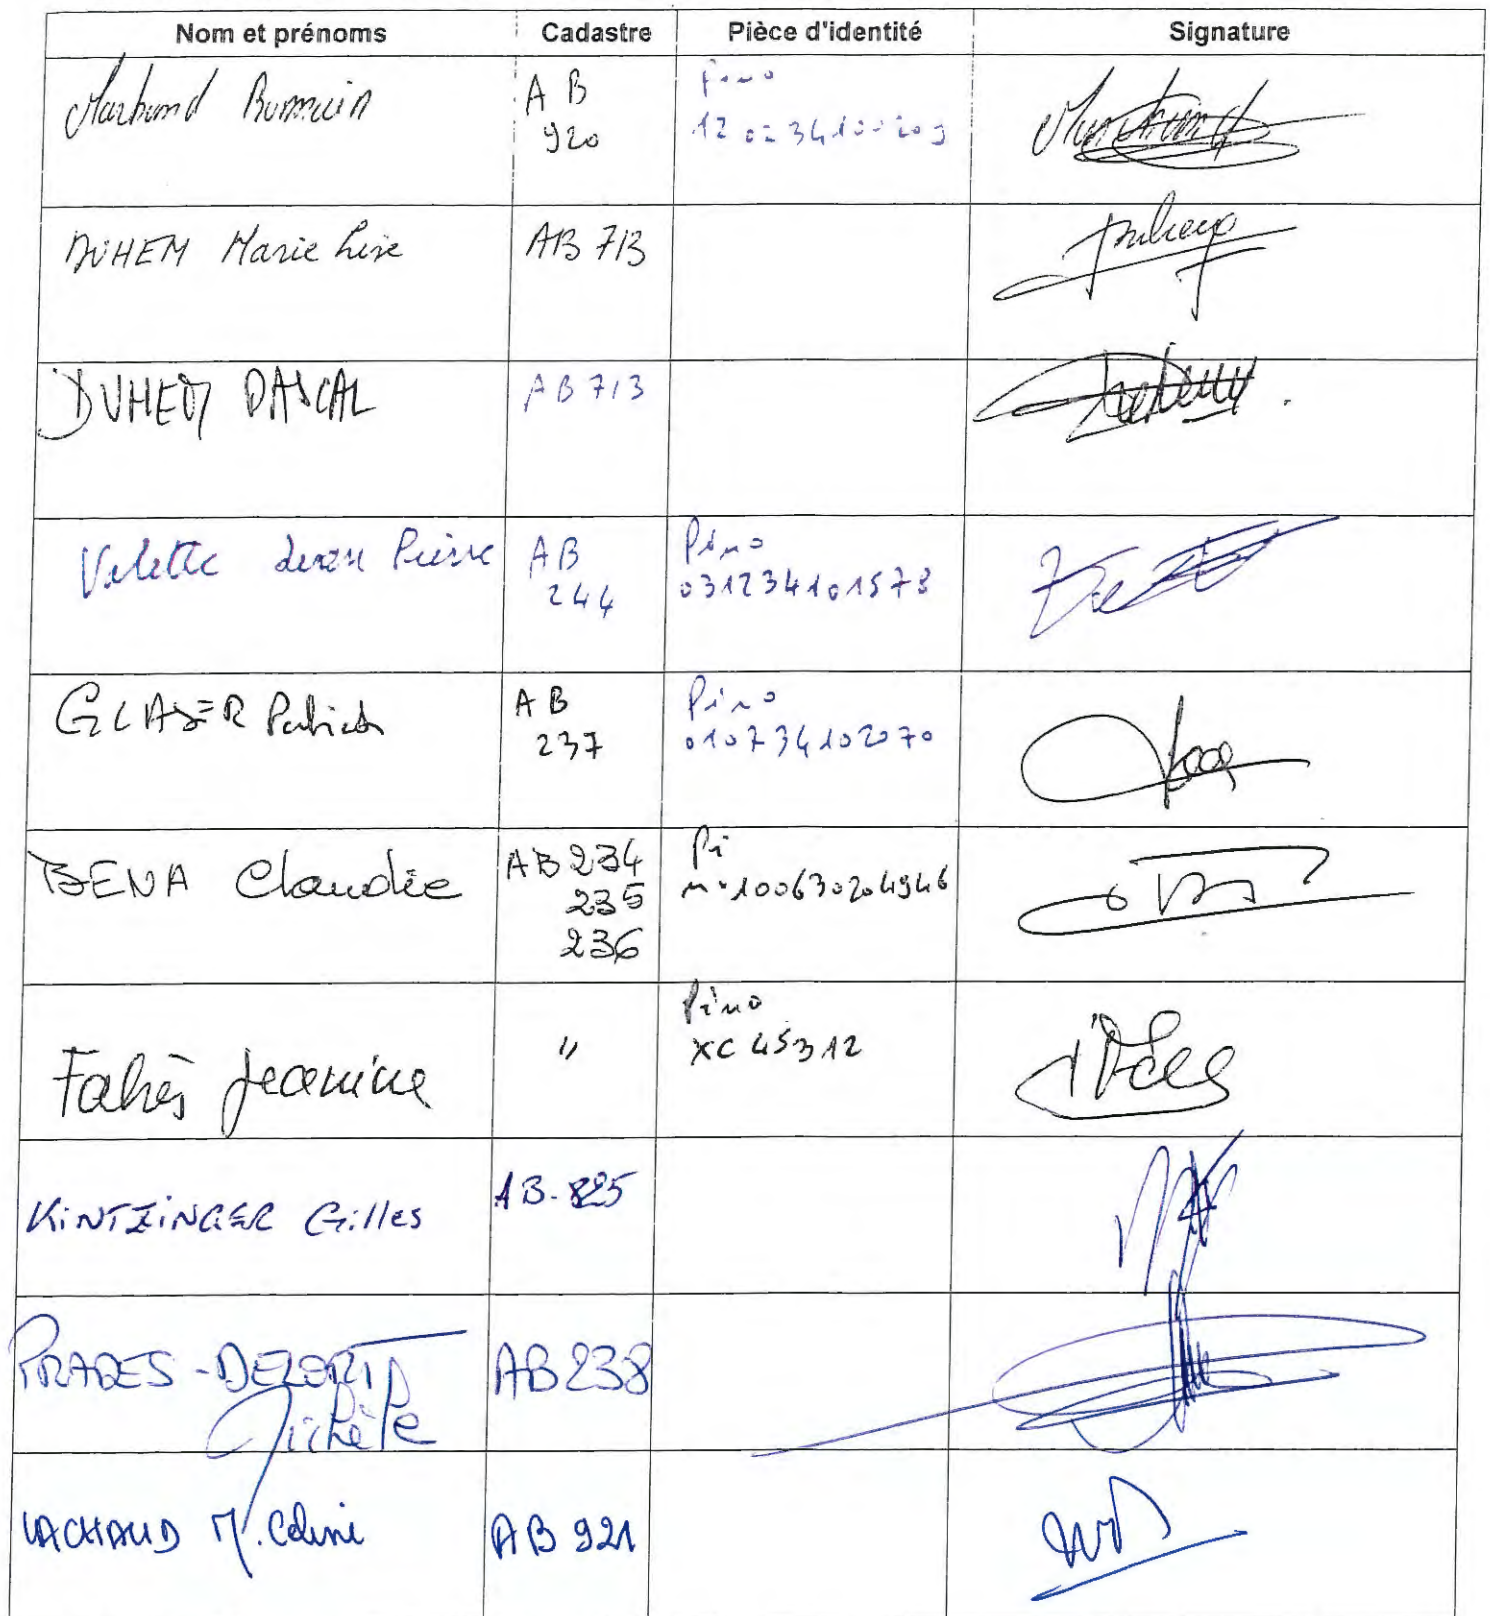 Nom et prénoms Cadastre Pièce d'identité Signature
A B
920
DUHEM Marie Lise AB 713
DUHEM PASCAL AB 713
Valette Jean Pierre AB
244
Pi no
031234101578
GLASER Patrick A B
237
Pi no
010734102070
BENA Claudie AB 234
235
236
Pi
n° 100630204946
Fabrès Jeanine "
Pi no
XC 45312
KINTZINGER Gilles AB. 825
PRADES-DEZORT
Michèle
AB 238
LACHAUD M. Céline AB 921